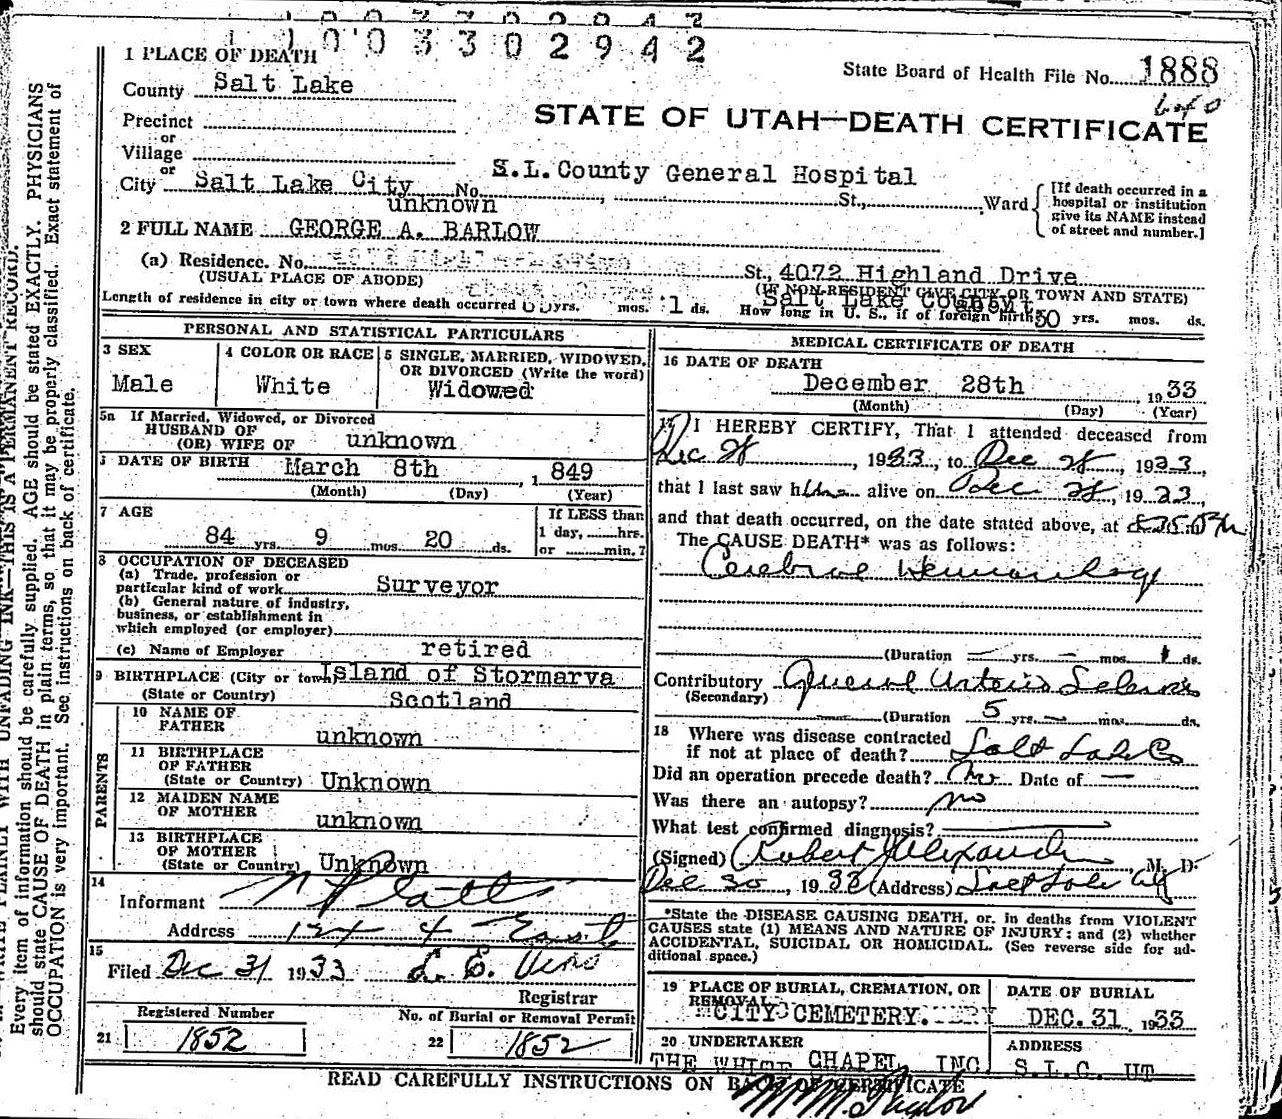 1003302942
1 PLACE OF DEATH
State Board of Health File No. 1888
County Salt Lake
STATE OF UTAH—DEATH CERTIFICATE
Precinct
or
Village
or
S.L.County General Hospital
City Salt Lake City No. St., Ward
[If death occurred in a
hospital or institution
give its NAME instead
of street and number.]
unknown
2 FULL NAME GEORGE A. BARLOW
(a) Residence. No. St., 4072 Highland Drive
(USUAL PLACE OF ABODE)
(IF NON-RESIDENT GIVE CITY OR TOWN AND STATE)
Salt Lake County
Length of residence in city or town where death occurred yrs. mos. 1 ds. How long in U. S., if of foreign birth? 50 yrs. mos. ds.
PERSONAL AND STATISTICAL PARTICULARS
3 SEX
Male
4 COLOR OR RACE
White
5 SINGLE, MARRIED, WIDOWED,
OR DIVORCED (Write the word)
Widowed
5a If Married, Widowed, or Divorced
HUSBAND OF
(OR) WIFE OF unknown
DATE OF BIRTH March 8th, 1849
(Month) (Day) (Year)
7 AGE
84 yrs. 9 mos. 20 ds.
If LESS than
1 day, hrs.
or min.?
8 OCCUPATION OF DECEASED
(a) Trade, profession or
particular kind of work Surveyor
(b) General nature of industry,
business, or establishment in
which employed (or employer)
(c) Name of Employer retired
9 BIRTHPLACE (City or town) Island of Stormarva
(State or Country) Scotland
PARENTS
10 NAME OF
FATHER unknown
11 BIRTHPLACE
OF FATHER
(State or Country) Unknown
12 MAIDEN NAME
OF MOTHER unknown
13 BIRTHPLACE
OF MOTHER
(State or Country) Unknown
14
Informant
Address 124 4 East
15
Filed Dec 31 1933 L. E.
Registrar
Registered Number
21 1852
No. of Burial or Removal Permit
22 1852
MEDICAL CERTIFICATE OF DEATH
16 DATE OF DEATH
December 28th, 1933
(Month) (Day) (Year)
17 I HEREBY CERTIFY, That I attended deceased from
Dec 28, 1933, to Dec 28, 1933,
that I last saw him alive on Dec 28, 1933,
and that death occurred, on the date stated above, at
The CAUSE DEATH* was as follows:
Cerebral Hemorrhage
(Duration — yrs. — mos. 1 ds.
Contributory General Arterio Sclerosis
(Secondary)
(Duration 5 yrs. — mos. ds.
18 Where was disease contracted
if not at place of death? Salt Lake Co
Did an operation precede death? No Date of —
Was there an autopsy? no
What test confirmed diagnosis?
(Signed) Robert Alexander, M. D.
Dec 30, 1933 (Address) Salt Lake City
*State the DISEASE CAUSING DEATH, or, in deaths from VIOLENT
CAUSES state (1) MEANS AND NATURE OF INJURY; and (2) whether
ACCIDENTAL, SUICIDAL OR HOMICIDAL. (See reverse side for ad-
ditional space.)
19 PLACE OF BURIAL, CREMATION, OR
REMOVAL
CITY CEMETERY.
DATE OF BURIAL
DEC. 31 1933
20 UNDERTAKER
THE WHITE CHAPEL, INC
ADDRESS
S.L.C. UT
READ CAREFULLY INSTRUCTIONS ON BACK OF CERTIFICATE
WRITE PLAINLY WITH UNFADING INK—THIS IS A PERMANENT RECORD.
Every item of information should be carefully supplied. AGE should be stated EXACTLY. PHYSICIANS
should state CAUSE OF DEATH in plain terms, so that it may be properly classified. Exact statement of
OCCUPATION is very important. See instructions on back of certificate.